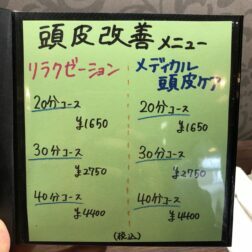 頭皮改善メニュー
リラクゼーション
20分コース
¥1650
30分コース
¥2750
40分コース
¥4400
メディカル
頭皮ケア
20分コース
¥1650
30分コース
¥2750
40分コース
¥4400
(税込)